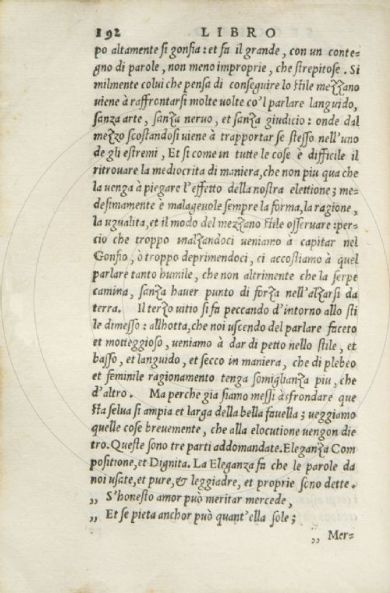 192 LIBRO
po altamente si gonfia: et fa il grande, con un conte=
gno di parole, non meno improprie, che strepitose. Si
milmente colui che pensa di conseguire lo stile mezzano
viene à raffrontarsi molte uolte co'l parlare languido,
sanza arte, sanza neruo, et sanza giudicio: onde dal
mezzo scostandosi uiene à trapportar se stesso nell'uno
de gli estremi, Et si come in tutte le cose è difficile il
ritrouare la mediocrita di maniera, che non piu qua che
la uenga à piegare l'effetto della nostra elettione; me=
desimamente è malageuole sempre la forma, la ragione,
la ugualita, et il modo del mezzano stile osseruare: per=
cio che troppo inalzandoci ueniamo a capitar nel
Gonfio, ò troppo deprimendoci, ci accostiamo à quel
parlare tanto humile, che non altrimente che la serpe
camina, sanza hauer punto di forza nell'alzarsi da
terra. Il terzo uitio si fa peccando d'intorno allo sti
le dimesso: allhotta, che noi uscendo del parlare faceto
et motteggioso, ueniamo à dar di petto nello stile, et
basso, et languido, et secco in maniera, che di plebeo
et feminile ragionamento tenga somiglianza piu, che
d'altro. Ma perche gia fiamo messi à sfrondare que
sta selua si ampia et larga della bella fauella; ueggiamo
quelle cose breuemente, che alla elocutione uengon die
tro. Queste sono tre parti addomandate. Eleganza Com
positione, et Dignita. La Eleganza fa che le parole da
noi usate, et pure, & leggiadre, et proprie sono dette.
,, S'honesto amor può meritar mercede,
,, Et se pieta anchor può quant'ella sole;
,, Mer=